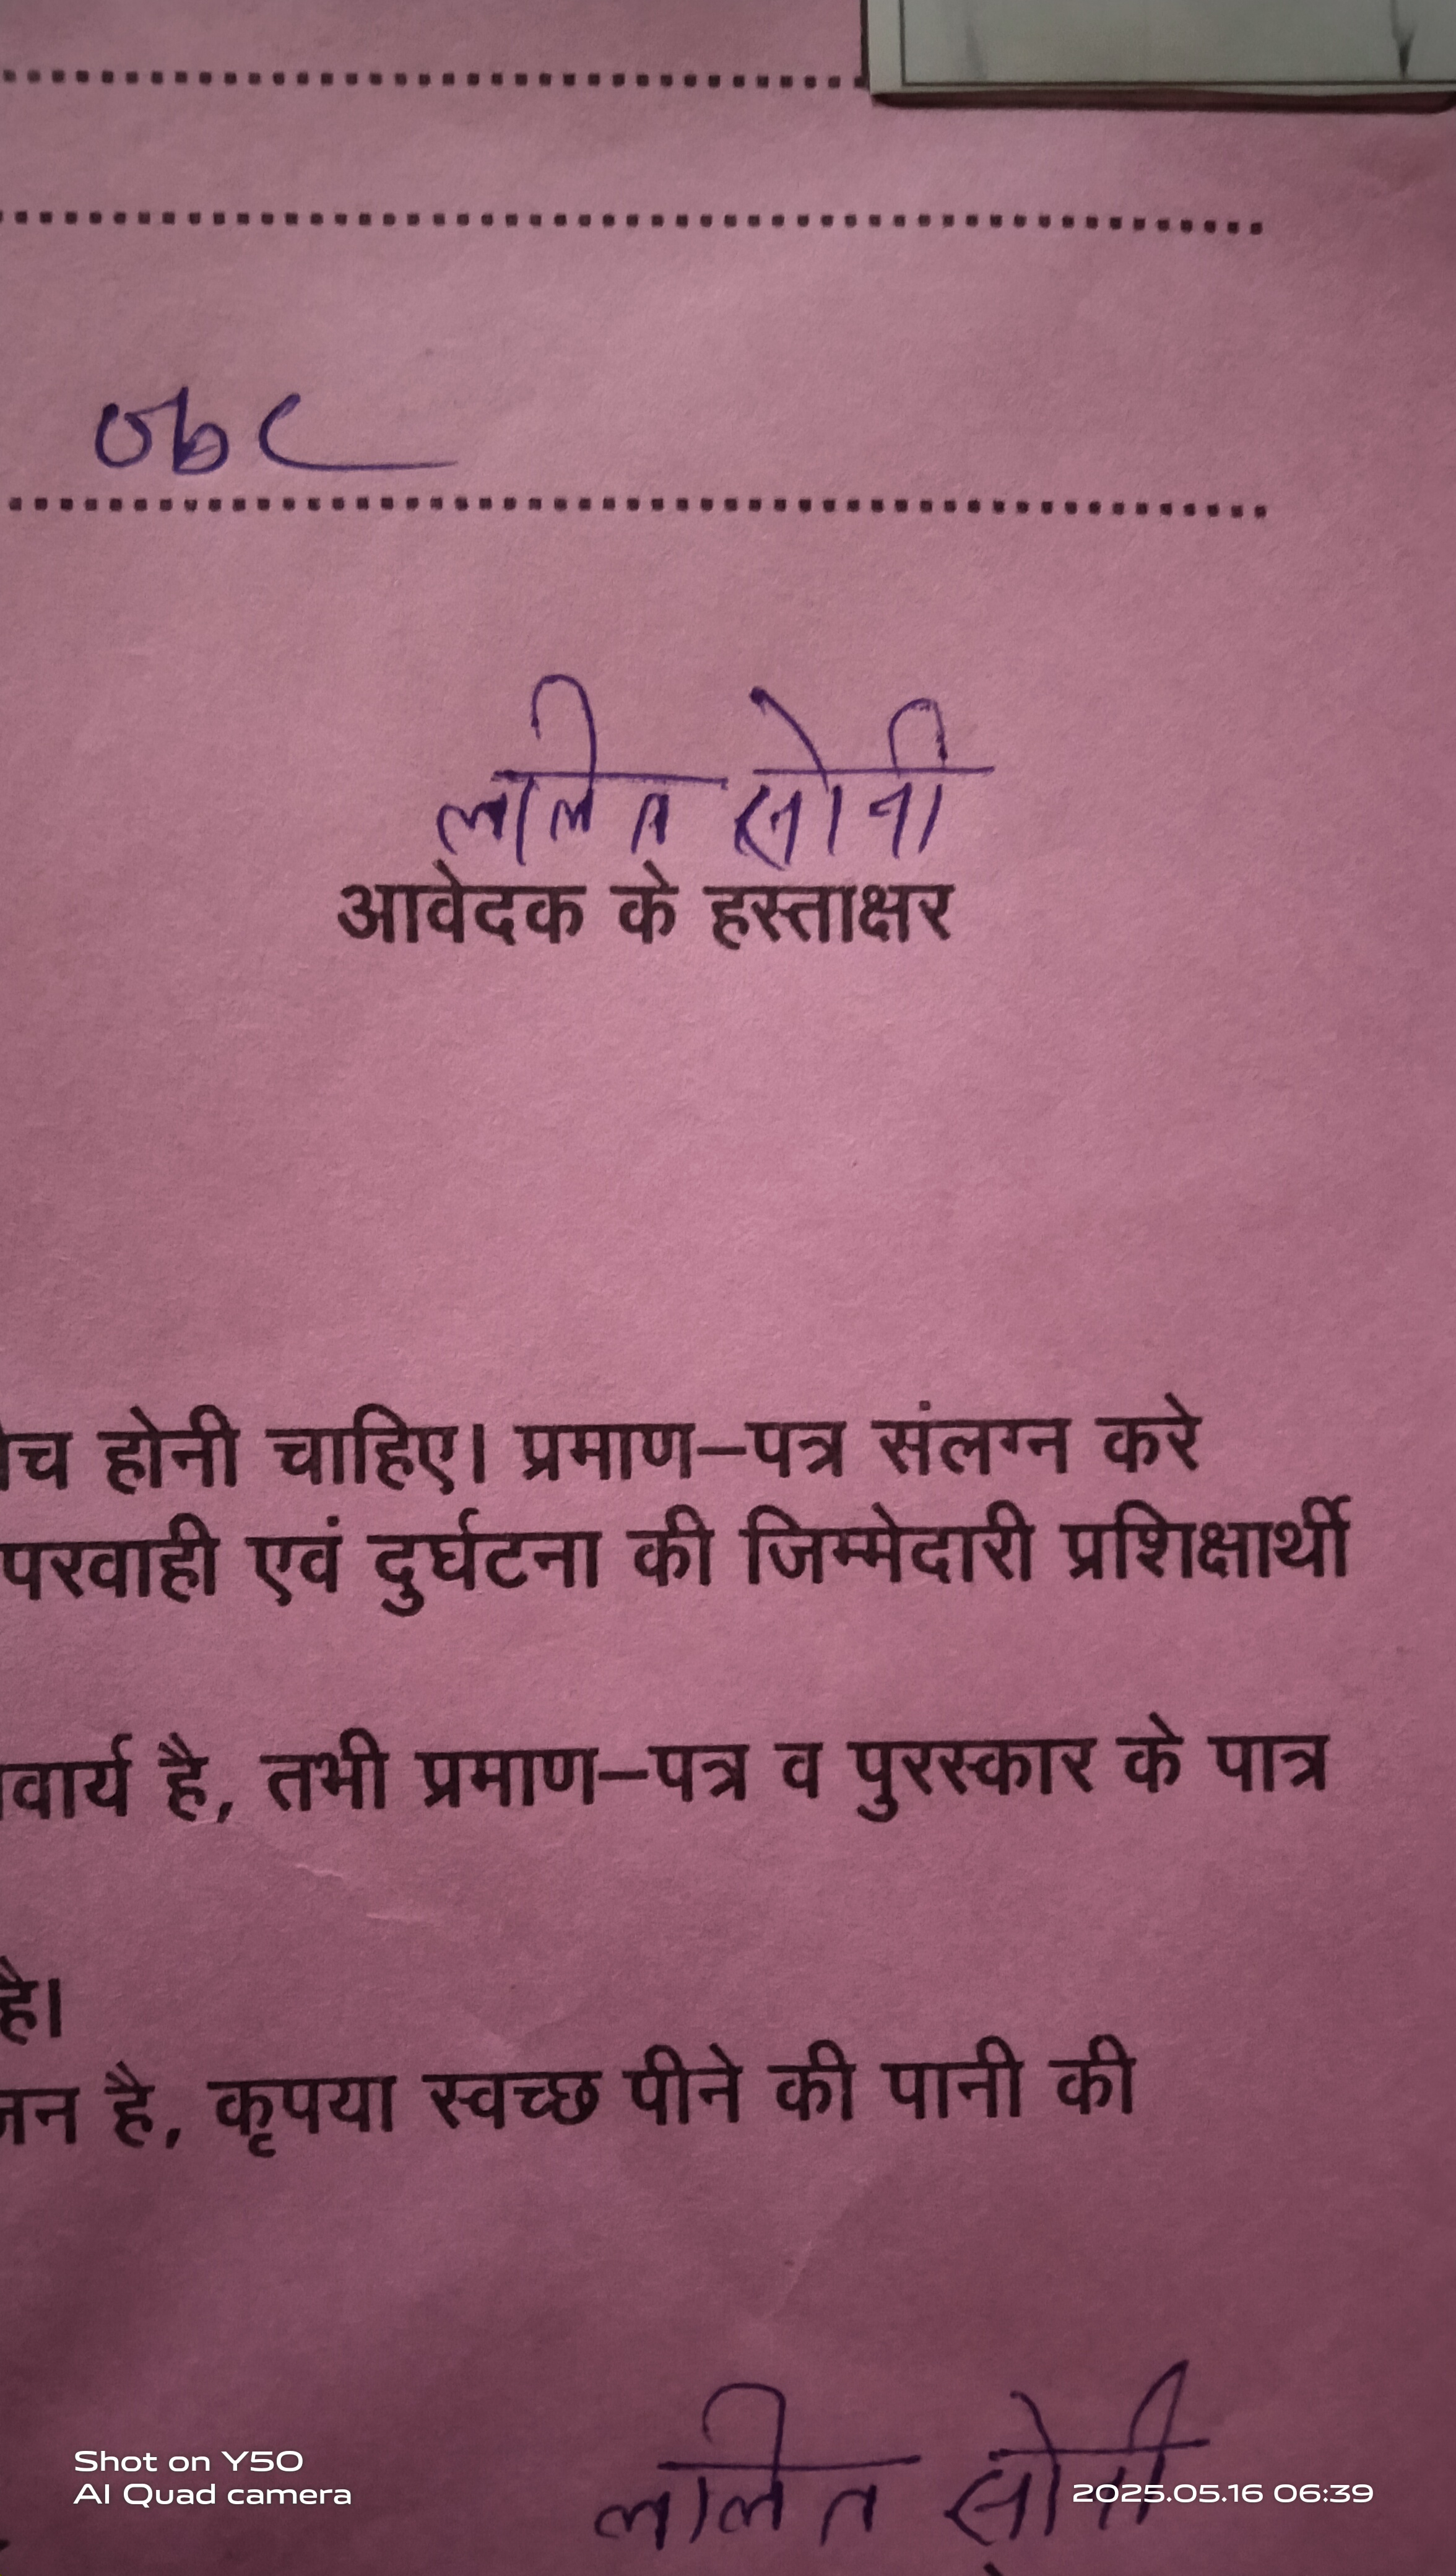 obc
ललित सोनी
आवेदक के हस्ताक्षर
च होनी चाहिए। प्रमाण–पत्र संलग्न करे
परवाही एवं दुर्घटना की जिम्मेदारी प्रशिक्षार्थी
वार्य है, तभी प्रमाण–पत्र व पुरस्कार के पात्र
है।
जन है, कृपया स्वच्छ पीने की पानी की
ललित सोनी
Shot on Y50
AI Quad camera
2025.05.16 06:39